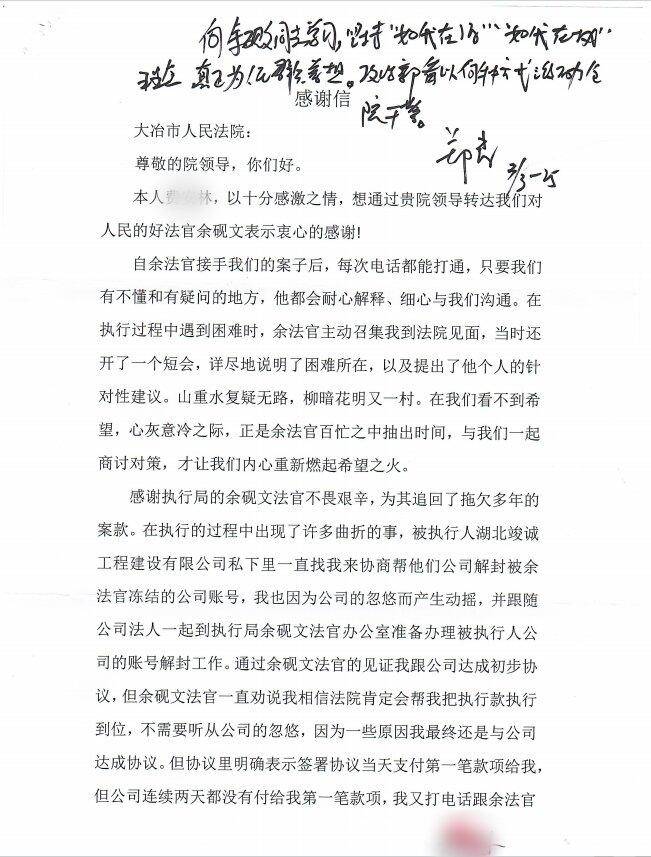 向余砚文同志学习，坚持“如我在诉”“如我在执”
理念，真正为人民群众着想。及时部署以何种方式活动全
院干警。
感谢信
大冶市人民法院：
尊敬的院领导，你们好。
本人费 林，以十分感激之情，想通过贵院领导转达我们对
人民的好法官余砚文表示衷心的感谢！
自余法官接手我们的案子后，每次电话都能打通，只要我们
有不懂和有疑问的地方，他都会耐心解释、细心与我们沟通。在
执行过程中遇到困难时，余法官主动召集我到法院见面，当时还
开了一个短会，详尽地说明了困难所在，以及提出了他个人的针
对性建议。山重水复疑无路，柳暗花明又一村。在我们看不到希
望，心灰意冷之际，正是余法官百忙之中抽出时间，与我们一起
商讨对策，才让我们内心重新燃起希望之火。
感谢执行局的余砚文法官不畏艰辛，为其追回了拖欠多年的
案款。在执行的过程中出现了许多曲折的事，被执行人湖北竣诚
工程建设有限公司私下里一直找我来协商帮他们公司解封被余
法官冻结的公司账号，我也因为公司的忽悠而产生动摇，并跟随
公司法人一起到执行局余砚文法官办公室准备办理被执行人公
司的账号解封工作。通过余砚文法官的见证我跟公司达成初步协
议，但余砚文法官一直劝说我相信法院肯定会帮我把执行款执行
到位，不需要听从公司的忽悠，因为一些原因我最终还是与公司
达成协议。但协议里明确表示签署协议当天支付第一笔款项给我，
但公司连续两天都没有付给我第一笔款项，我又打电话跟余法官